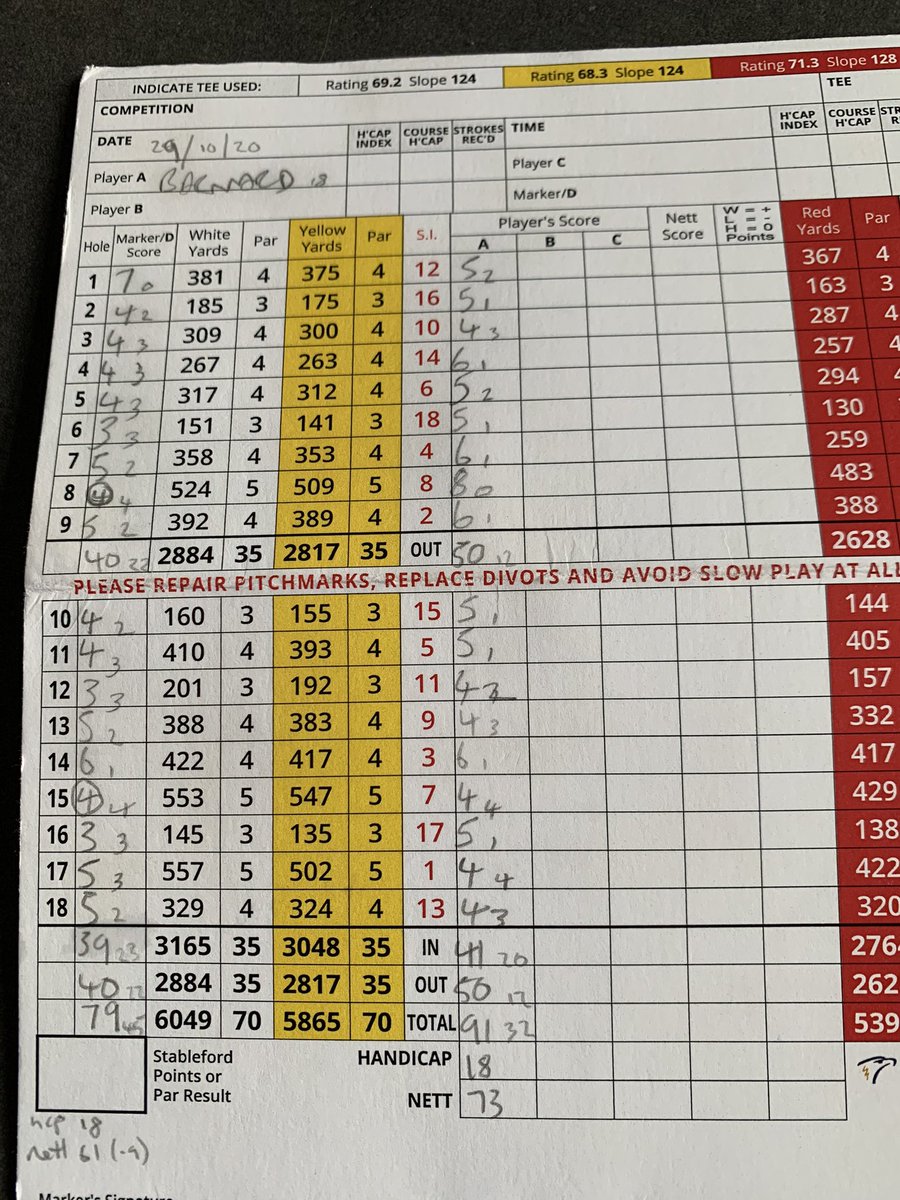 INDICATE TEE USED: Rating 69.2 Slope 124 Rating 68.3 Slope 124 Rating 71.3 Slope 128
COMPETITION TEE
DATE 29/10/20 H'CAP INDEX COURSE H'CAP STROKES REC'D TIME H'CAP INDEX COURSE H'CAP
Player A BARNARD 18 Player C
Player B Marker/D
Hole Marker/D Score White Yards Par Yellow Yards Par S.I. Player's Score A B C Nett Score W = + L = - H = 0 Points Red Yards Par
1 7 0 381 4 375 4 12 5 2 367 4
2 4 2 185 3 175 3 16 5 1 163 3
3 4 3 309 4 300 4 10 4 3 287 4
4 4 3 267 4 263 4 14 6 1 257 4
5 4 3 317 4 312 4 6 5 2 294 4
6 3 3 151 3 141 3 18 5 1 130
7 5 2 358 4 353 4 4 6 1 259
8 4 4 524 5 509 5 8 8 0 483
9 5 2 392 4 389 4 2 6 1 388
40 22 2884 35 2817 35 OUT 50 12 2628
PLEASE REPAIR PITCHMARKS, REPLACE DIVOTS AND AVOID SLOW PLAY AT ALL
10 4 2 160 3 155 3 15 5 1 144
11 4 3 410 4 393 4 5 5 1 405
12 3 3 201 3 192 3 11 4 3 157
13 5 2 388 4 383 4 9 4 3 332
14 6 1 422 4 417 4 3 6 1 417
15 4 4 553 5 547 5 7 4 4 429
16 3 3 145 3 135 3 17 5 1 138
17 5 3 557 5 502 5 1 4 4 422
18 5 2 329 4 324 4 13 4 3 320
39 23 3165 35 3048 35 IN 41 20 276
40 22 2884 35 2817 35 OUT 50 12 262
79 45 6049 70 5865 70 TOTAL 91 32 539
Stableford Points or Par Result HANDICAP 18
NETT 73
hcp 18
nett 61 (-9)
Marker's Signature